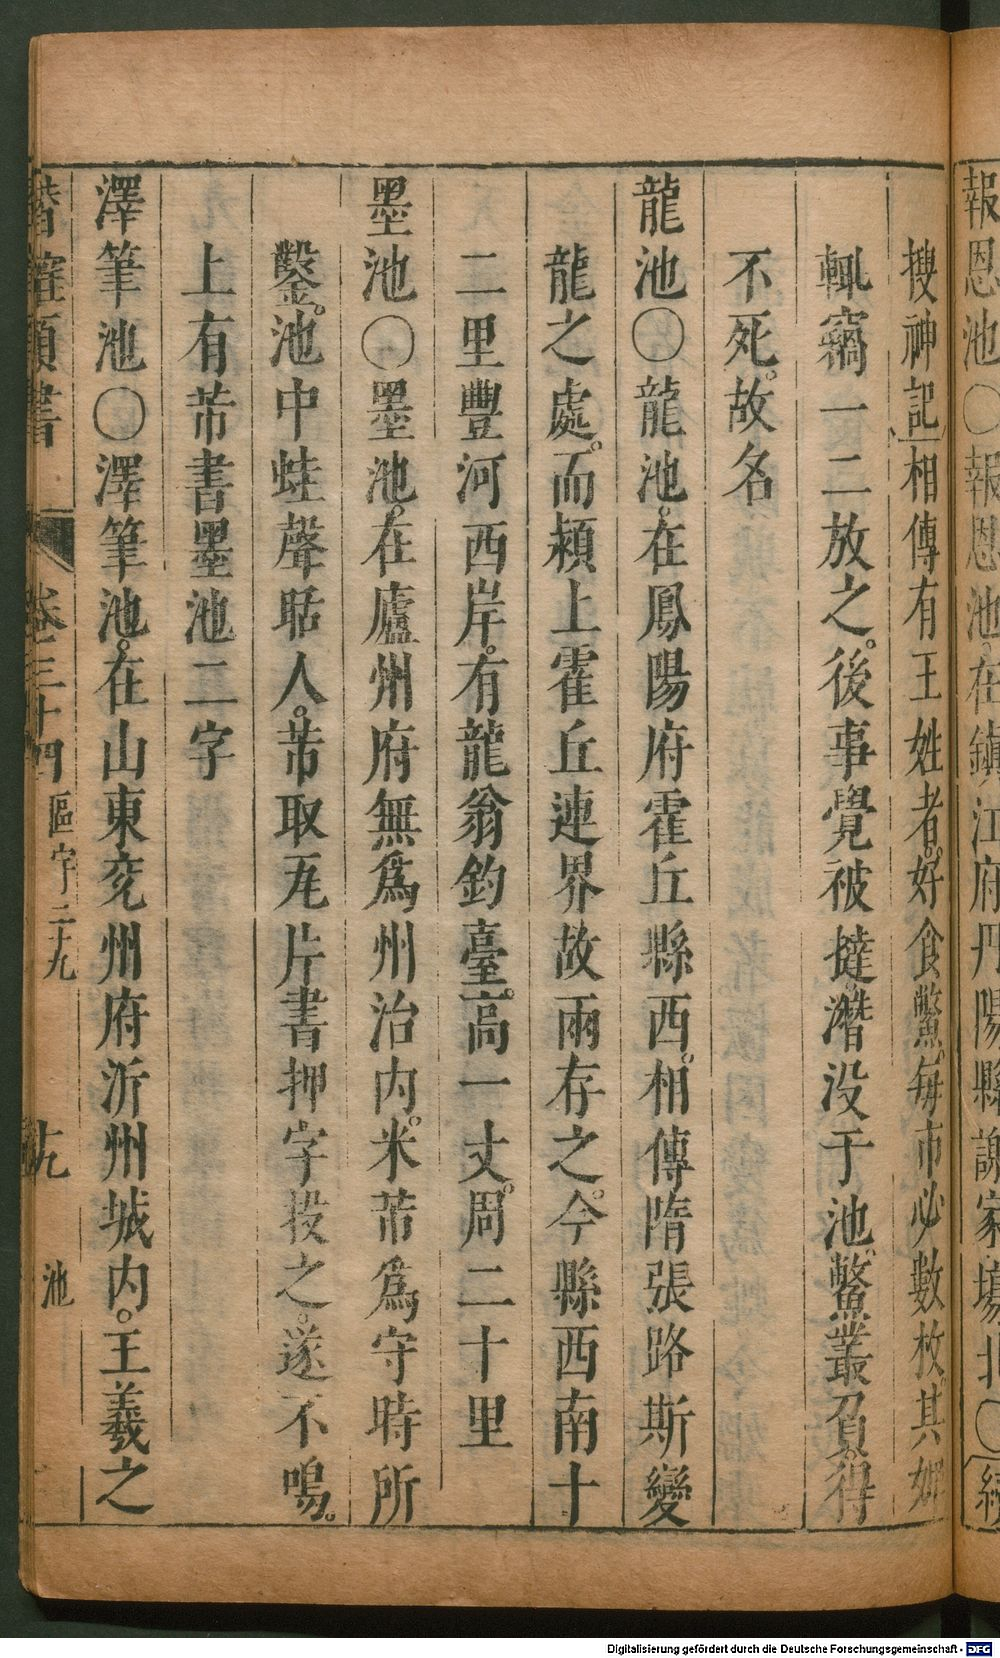 報恩池〇報恩池在鎮江府丹陽縣謝家塲北〇
搜神記相傳有王姓者。好食鱉。每市必數枚。其
輒竊一二放之。後事覺被撻。潛没于池。鱉叢負。得
不死。故名
龍池〇龍池。在鳳陽府霍丘縣西。相傳隋張路斯變
龍之處。而潁上霍丘連界故兩存之。今縣西南十
二里豐河西岸。有龍翁釣臺。高一丈。周二十里
墨池〇墨池。在廬州府無爲州治内。米芾爲守時所
鑿。池中蛙聲聒人。芾取瓦片書押字投之。遂不鳴。
上有芾書墨池二字
澤筆池〇澤筆池。在山東兖州府沂州城内。王羲之
卷三十四 區字二九 池
Digitalisierung gefördert durch die Deutsche Forschungsgemeinschaft - DFG